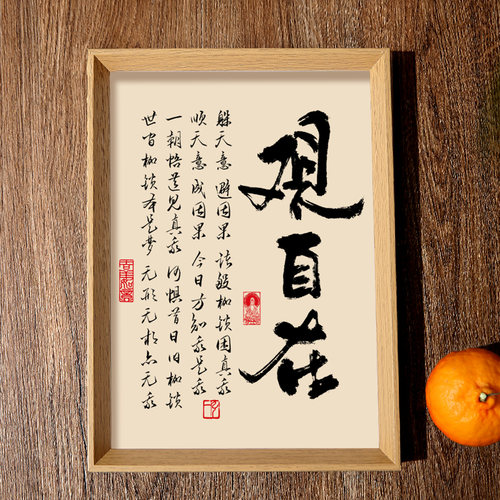 观自在
躲天意 避因果 诸般枷锁困真我
顺天意 成因果 今日方知我是我
一朝悟道见真我 何惧昔日旧枷锁
世间枷锁本是梦 无形无相亦无我